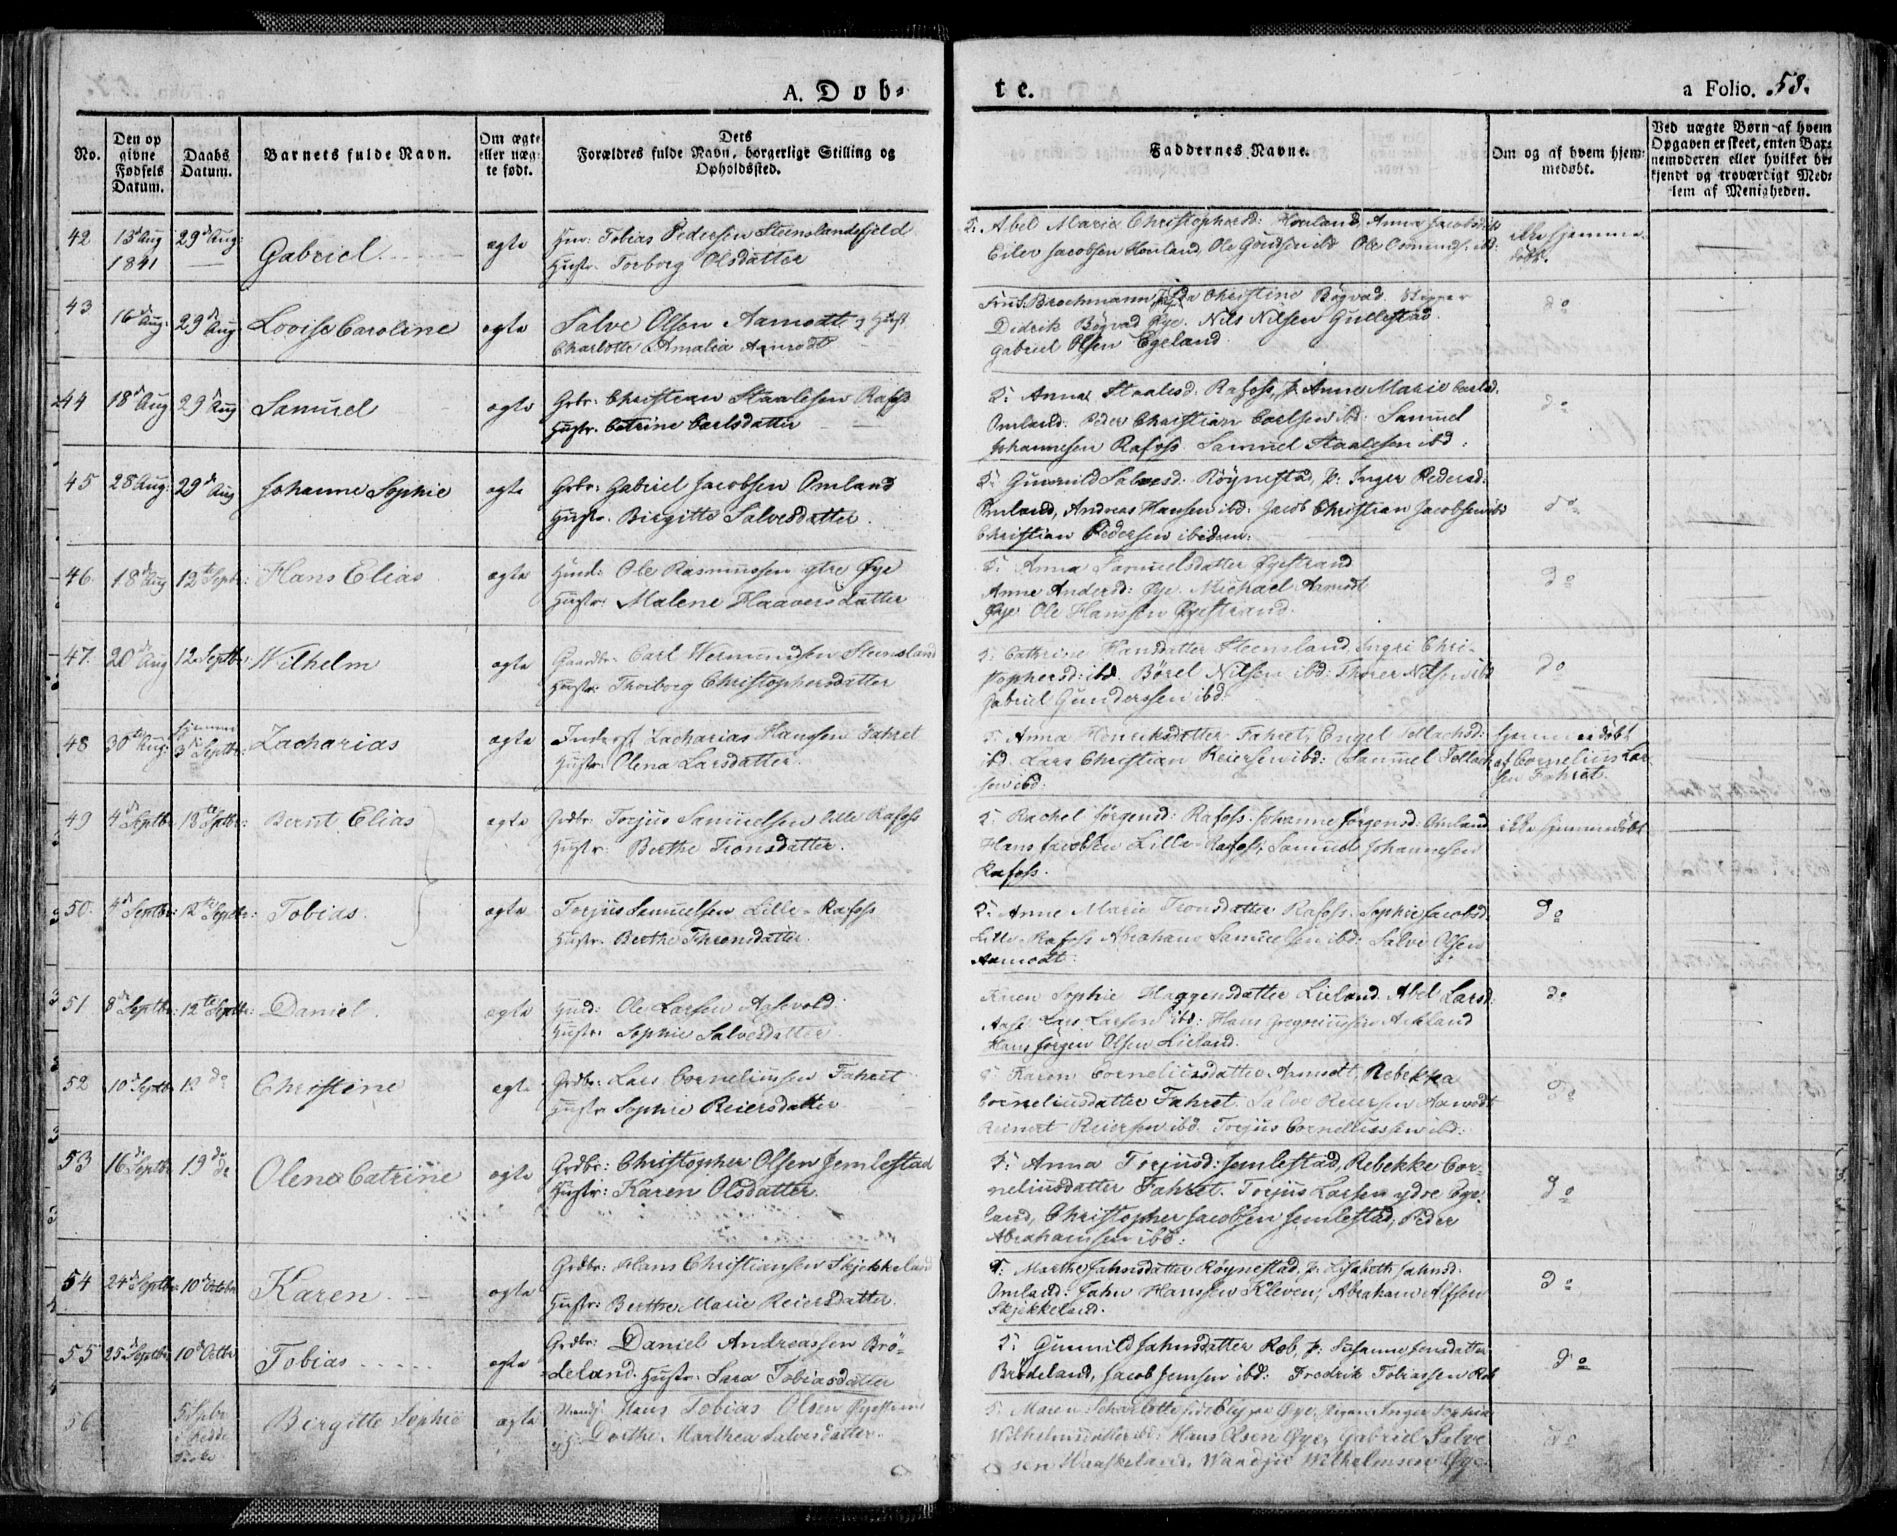 A. Døb-
te.
a Folio. 58.
No.
Den op
givne
Fødsels
Datum.
Daabs
Datum.
Barnets fulde Navn.
Om ægte
eller uæg-
te født.
Dets
Forældres fulde Navn, borgerlige Stilling og
Opholdssted.
Faddernes Navne.
Om og af hvem hjem-
medøbt.
Ved uægte Børn af hvem
Opgaven er skeet, enten Bar-
nemoderen eller hvilket be-
kjendt og troværdigt Med-
lem af Menigheden.
42 13d Aug 1841 29d Aug: Gabriel ægte
Tobias Pedersen Steenslandsfjeld
Hustr. Torborg Olsdatter
Abel Maria Christophersd: Anna Jacobsd
Eilev Jacobsen Ole Ole Osmunds. ibd:
ikke hjemme
døbt.
43 16d Aug: 29d Aug Lovise Caroline ægte
Salve Olsen Aamodt og Hust
Charlotte Amalia Aamodt
Brochmann Christine Bøgvad. Skipper
Didrik Bøgvad Øye. Nils Nilsen Gullestad
Gabriel Olsen Egeland
do
44 18d Aug 29d Aug Samuel ægte
Grbr: Christian Staalesen Rafoss
Hustr. Catrine Carlsdatter
Anna Staalesd. Rafoss, p: Anne Marie Carlsd.
Omland. Peder Christian Carlsen ibd: Samuel
Johannesen Rafoss. Samuel Staalesen ibd:
do
45 28 Aug: 29d Aug Johanne Sophie ægte
Grbr: Gabriel Jacobsen Omland
Hustr. Birgitte Salvesdatter.
Gunnild Salvesd: Røynestad, p: Inger Pedersd:
Omland, Andreas Hansen ibd: Jacob Christian Jacobsen ibd
Christian Pedersen ibidem.
do
46. 18d Aug 12te Septbr: Hans Elias ægte
Huusd: Ole Rasmussen ytre Øye
Hustr. Malene Haaversdatter
Anna Samuelsdatter Øyestrand
Anne Andersd: Øye. Michael Aamodt
Øye. Ole Hanssen Øyestrand.
do
47. 20d Aug 12 Septbr: Wilhelm ægte
Gaardbr. Carl Wermundsen Steensland
Hustr: Thorborg Christophersdatter
Cathrine Hansdatter Steensland, Ingri Chri-
stophersd: ibd. Børel Nilsen ibd: Thorer Nilsen ibd
Gabriel Gunderssen ibd:
do
48 30te Aug: hjemme 3d Septbr. Zacharias ægte
Inderst Zacharias Hansen Fahret
Hustr. Olena Larsdatter.
Anna Henriksdatter Fahret, Engel
ibd. Lars Christian Reiersen ibd: Samuel
sen ibd:
hjemmedøbt
af Cornelius Lar-
sen Fahret.
49 4d Septbr: 12te Septbr: Bernt Elias ægte
Grdbr. Torjus Samuelsen Lille Rafoss
Hustr. Berthe Tronsdatter.
Rachel Jørgensd: Rafoss. Johanne Jørgensd: Omland
Hans Jacobsen Lille-Rafoss, Samuel Johannesen
Rafoss.
ikke hjemmedøbt
50. 4d Septbr: 12te Septbr: Tobias. ægte
Torjus Samuelsen Lille-Rafoss
Hustr. Berthe Thronsdatter.
Anne Marie Tronsdatter Rafoss. Sophie Jacobsd.
Lille Rafoss Abraham Samuelsen ibd: Salve Olsen
Aamodt.
do
51 8d Septbr: 12te Septbr: Daniel. ægte
Huusd: Ole Larsen Aasevold.
Hustr: Sophie Salvesdatter.
Karen Sophie Haagensdatter Lieland. Abel Larsd:
Aase Lars Larsen ibd: Hans Gregoriussen
Hans Jørgen Olsen Lieland.
do
52 10d Septbr 12 do Christine ægte
Grdbr: Lars Corneliussen Fahret
Hustr Sophie Reiersdatter
Karen Corneliusdatter Aamodt, Rebekka
Corneliusdatter Fahret. Salve Reiersen Aamodt
Reinert Reiersen ibd. Torjus Corneliussen ibd:
do
53 16d Septbr: 19de do Olene Catrine ægte
Grdbr: Christopher Olsen Jemlestad
Hustr: Karen Olsdatter.
Anna Torjusd: Jemlestad, Rebekke Cor-
neliusdatter Fahret. Torjus Larsen ydre Ege-
land, Christopher Jacobsen Jemlestad, Peder
Abrahamsen ibd:
do
54 24d Septbr: 10d Octobr Karen. ægte
Grdbr: Hans Christiansen Skjekkeland
Hustr: Berthe Marie Reiersdatter.
Marthe Jahnsdatter Røynestad, p: Lisabeth Jahnsd:
Omland: Jahn Hanssen Kleven, Abraham Alfsen
Skjekkeland.
do
55 25d Septbr 10d Octbr Tobias ægte
Grdbr: Daniel Andreassen Brö-
deland. Hustr. Sara Tobiasdatter
Gunnild Jahnsdatter Rob p: Susanne Jensdatter
Brödeland, Jacob Jensen ibd: Fredrik Tobiassen Rob
do
56 Birgitte Sophie ægte
Hans Tobias Olsen Øyestrand
Dorthe Marthea Salvesdatter.
Maren Scharlotte Øye, Inger Sophia
Wilhelmsdatter ibd: Hans Olsen Øye, Gabriel Salve-
sen Haaskeland. Wilhelmsen Øye.
do